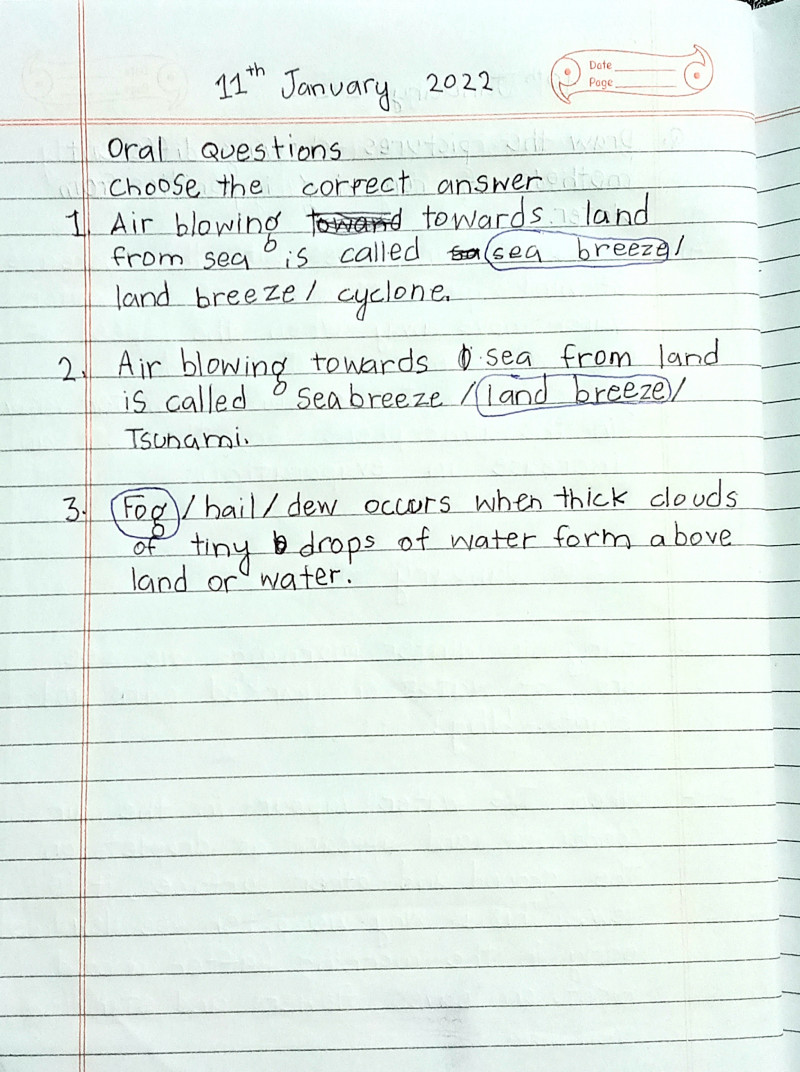 11th January, 2022
Date
Page
Oral Questions
choose the correct answer
1. Air blowing toward towards land
from sea is called sa sea breeze/
land breeze/ cyclone.
2. Air blowing towards sea from land
is called Seabreeze /land breeze/
Tsunami.
3. Fog/hail/dew occurs when thick clouds
of tiny drops of water form above
land or water.